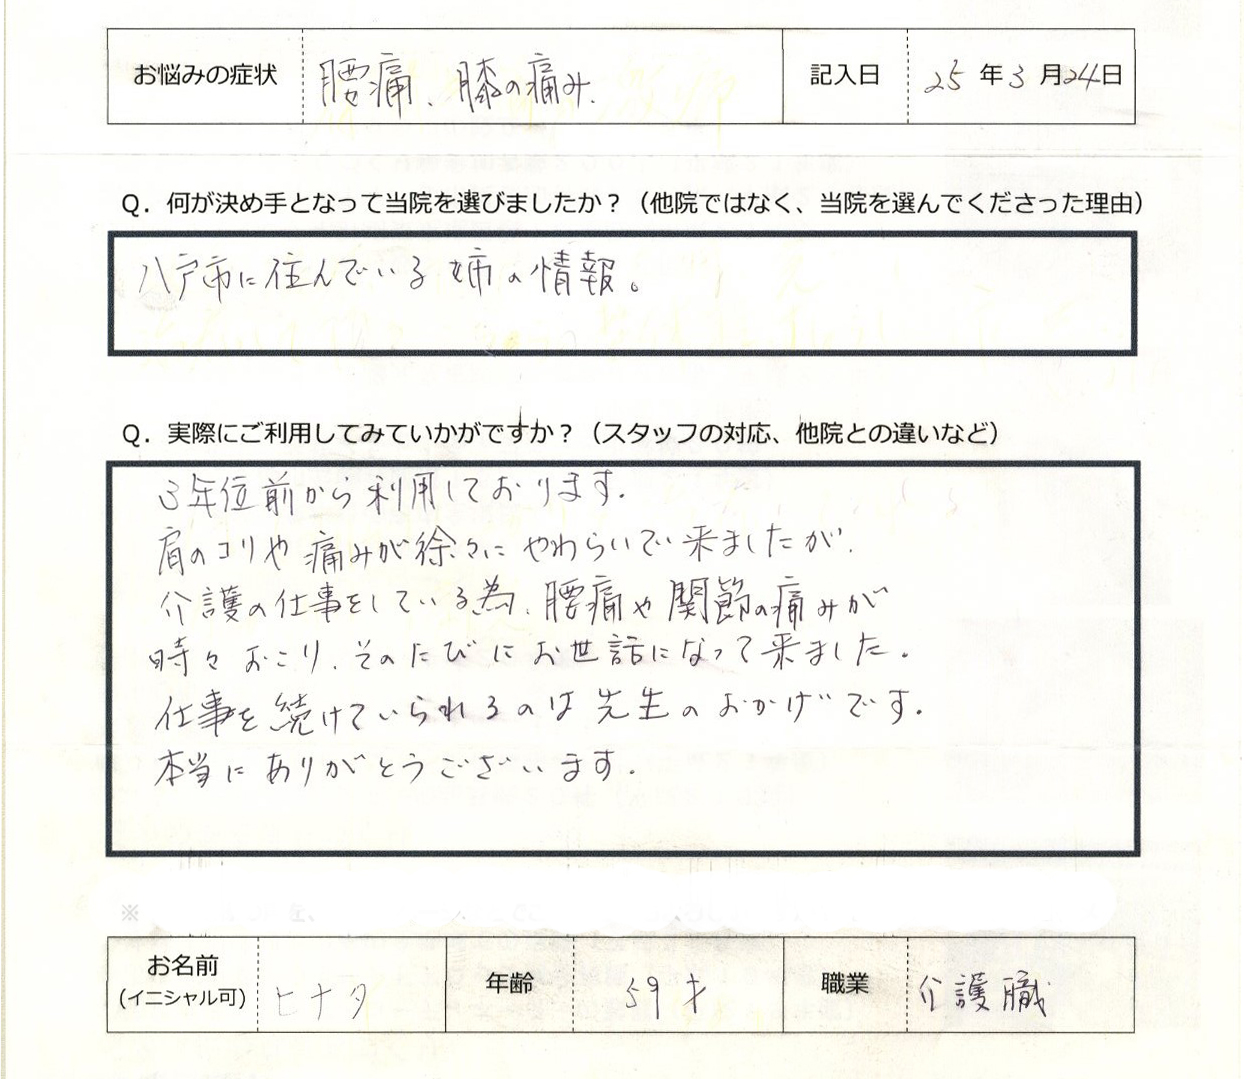 お悩みの症状 腰痛、膝の痛み. 記入日 25年3月24日
Q．何が決め手となって当院を選びましたか？（他院ではなく、当院を選んでくださった理由）
八戸市に住んでいる姉の情報。
Q．実際にご利用してみていかがですか？（スタッフの対応、他院との違いなど）
3年位前から利用しております.
肩のコリや痛みが徐々にやわらいで来ましたが.
介護の仕事をしている為、腰痛や関節の痛みが
時々おこり、そのたびにお世話になって来ました.
仕事を続けていられるのは先生のおかげです.
本当にありがとうございます.
※
お名前 ヒナタ 年齢 59才 職業 介護職
(イニシャル可)